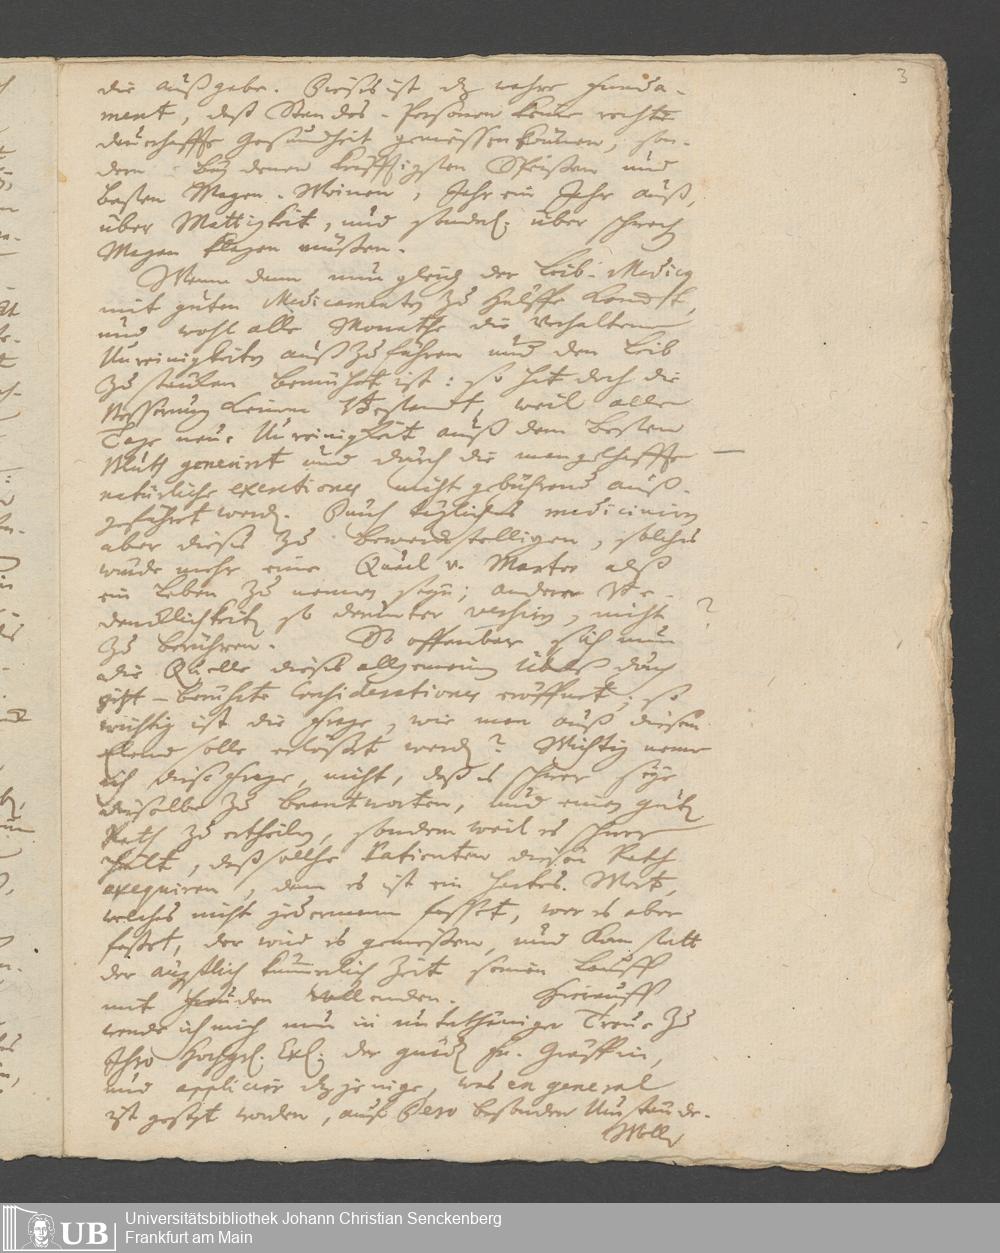 3
die außgabe. Dieses ist dz wahre funda-
ment, daß Standes-Personen keine recht
dauerhaffte Gesundheit geniessen können, son-
dern bey denen kräfftigsten Speisen und
besten Magen-Weinen, Jahr ein Jahr auß,
über Mattigkeit, und sonderl. über schwach
Magen klagen müßen.
Wenn dann nun gleich der Leib-Medicus
mit guten Medicamenten zu Hülffe kombt,
und wohl alle Monathe die verhaltene
Unreinigkeiten auß zu führen und den Leib
zu stärken bemühet ist: so hat doch die
Besserung keinen Bestandt, weil alle
Tage neue Unreinigkeit auß dem besten
Bluth generirt und durch die mangelhaffte
natürliche excretiones nicht gebührend auß-
geführet werd. Durch tägliches mediciniren
aber dieses zu bewerckstelligen, solches
würde mehr eine Quaal v. Marter alß
ein Leben zu nennen seyn; anderer Be-
dencklichkeiten so darunter versiren, nicht ?
zu berühren. So offenbar sich nun
die Quelle dieses allgemeinen Übels durch
jetzt-berührte Considerationes eröffnet, so
wichtig ist die frage, wie man auß diesem
Elend solle erlößet werd? Wichtig nenne
ich diese frage, nicht, daß es schwer seye
dieselbe zu beantworten, und einen guten
Rath zu ertheilen, sondern weil es schwer
hält, daß solche Patienten diesen Rath
exequiren, denn es ist ein hartes Wort,
welches nicht jedermann fasset, wer es aber
fasset, der wird es geniessen, und kan statt
der ängstlich kümmerlich Zeit seinen Lauff
mit freuden vollenden. Hierauff
wende ich mich nun in unterthäniger Treue zu
Ihro Hochgl. Exl. der gnäd. fr. Gräffin,
und applicire dzjenige, was in general
ist gesetzt worden, auf Dero besondere Umstände.